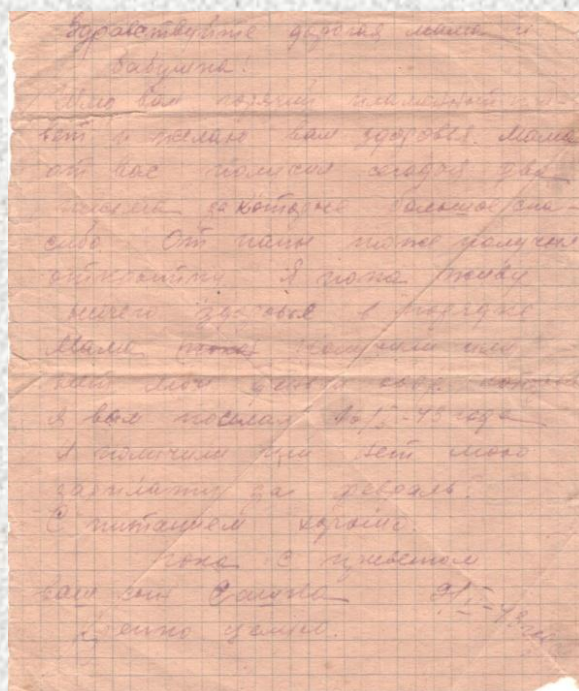 Здравствуйте дорогая мама и
бабушка!
Шлю вам горячий пламенный при-
вет и желаю вам здоровья. Мама
от вас получил сегодня два
письма за которые большое спа-
сибо. От папы тоже получил
открытку. Я пока живу
ничего здоровье в порядке
Мама получили или
нет мои деньги
я вам послал 43 года
И получили или нет мою
зарплату за февраль?
С питанием хорошо.
пока с приветом
ваш сын
Крепко целую.